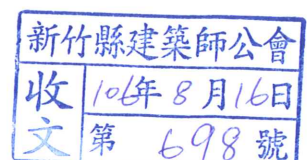 新竹縣建築師公會
收文
106年8月16日
第 698 號